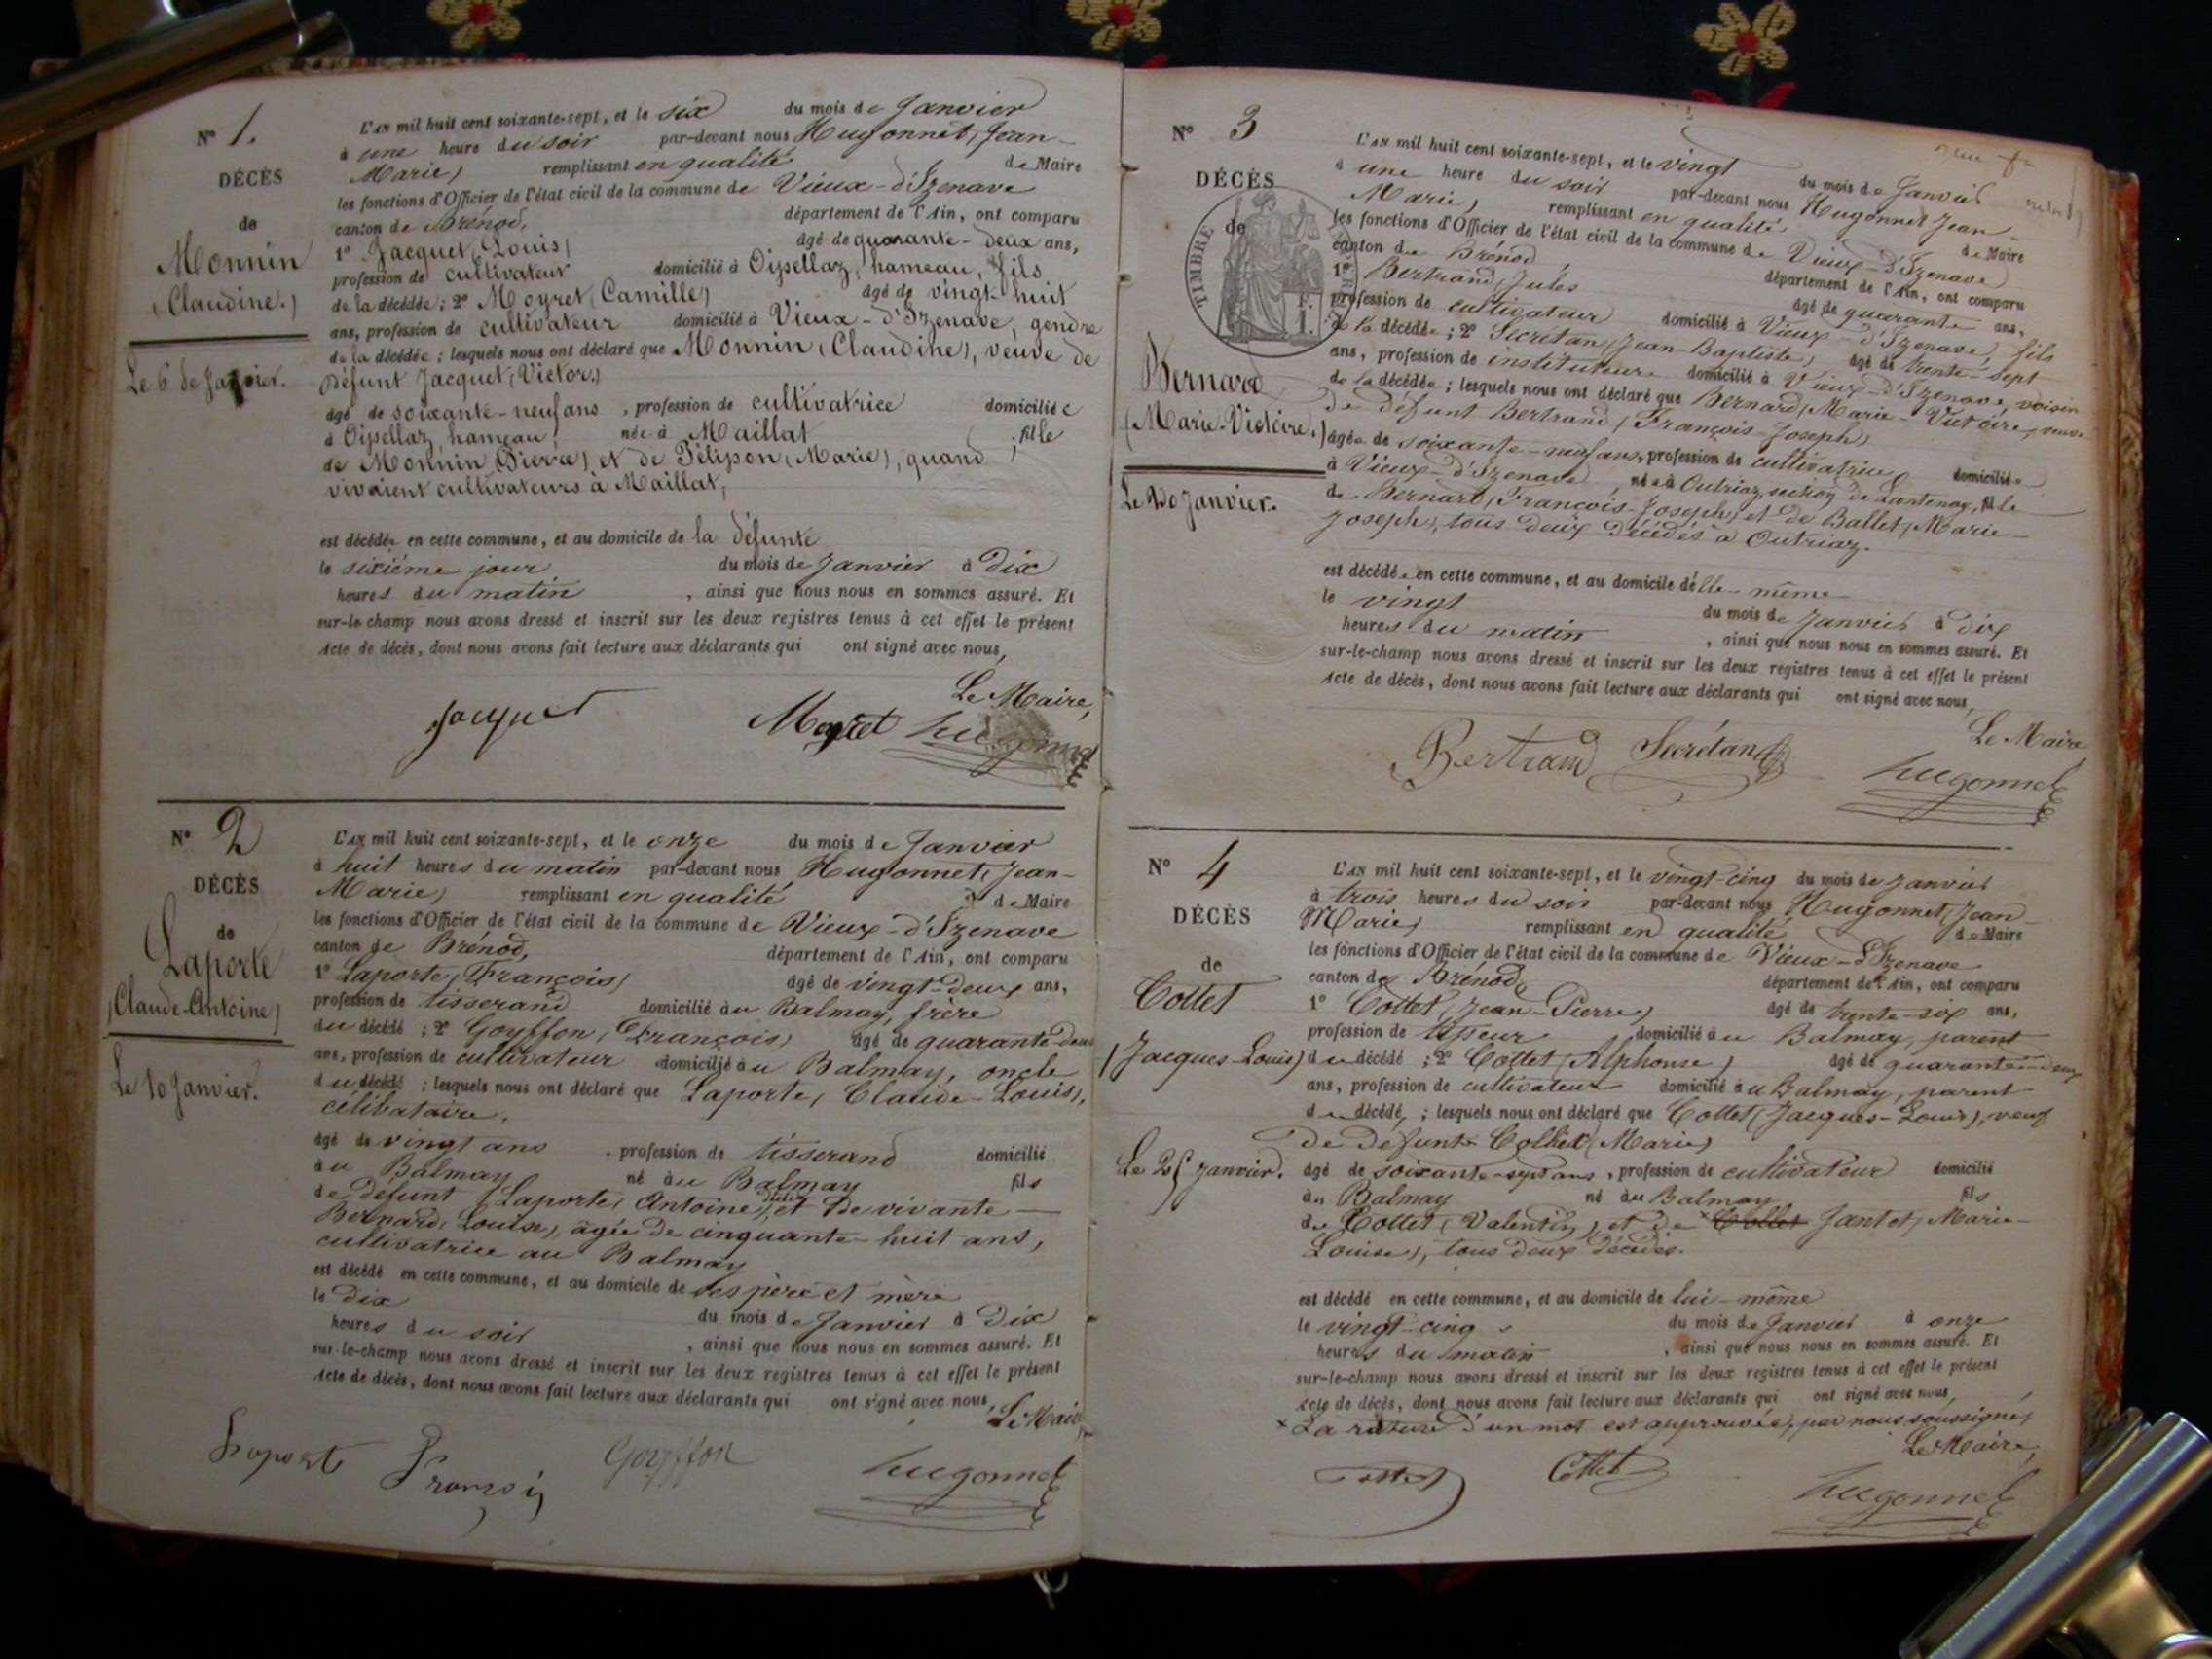 N° 1.
DÉCÈS
de
Monnin
(Claudine.)
Le 6 de Janvier.
L'AN mil huit cent soixante-sept, et le six du mois de Janvier
à une heure du soir par-devant nous Hugonnet, Jean-
Marie) remplissant en qualité de Maire
les fonctions d'Officier de l'état civil de la commune de Vieux-d'Izenave
canton de Brénod, département de l'Ain, ont comparu
1° Jacquet (Louis) âgé de quarante-deux ans,
profession de cultivateur domicilié à Oisellaz, hameau, fils
de la décédée ; 2° Moyret (Camille) âgé de vingt-huit
ans, profession de cultivateur domicilié à Vieux-d'Izenave, gendre
de la décédée ; lesquels nous ont déclaré que Monnin (Claudine), veuve de
défunt Jacquet (Victor)
âgé de soixante-neuf ans, profession de cultivatrice domiciliée
à Oisellaz, hameau, née à Maillat ; fille
de Monnin (Pierre) et de Pélisson (Marie), quand
vivaient cultivateurs à Maillat,
est décédée en cette commune, et au domicile de la défunte
le sixième jour du mois de Janvier à dix
heures du matin, ainsi que nous nous en sommes assuré. Et
sur-le-champ nous avons dressé et inscrit sur les deux registres tenus à cet effet le présent
acte de décès, dont nous avons fait lecture aux déclarants qui ont signé avec nous,
Le Maire,
Jacquet Moyret hugonnet
N° 2
DÉCÈS
de
Laporte
(Claude-Antoine)
Le 10 Janvier.
L'AN mil huit cent soixante-sept, et le onze du mois de Janvier
à huit heures du matin par-devant nous Hugonnet, Jean-
Marie) remplissant en qualité de Maire
les fonctions d'Officier de l'état civil de la commune de Vieux-d'Izenave
canton de Brénod, département de l'Ain, ont comparu
1° Laporte (François) âgé de vingt-deux ans,
profession de tisserand domicilié au Balmay, frère
du décédé ; 2° Goyffon (François) âgé de quarante-deux
ans, profession de cultivateur domicilié au Balmay, oncle
du décédé ; lesquels nous ont déclaré que Laporte (Claude-Louis),
célibataire,
âgé de vingt ans, profession de tisserand domicilié
au Balmay né au Balmay fils
de défunt (Laporte, Antoine) et de vivante
Bernard, Louise), âgée de cinquante-huit ans,
cultivatrice au Balmay
est décédé en cette commune, et au domicile de ses père et mère
le dix du mois de Janvier à dix
heures du soir, ainsi que nous nous en sommes assuré. Et
sur-le-champ nous avons dressé et inscrit sur les deux registres tenus à cet effet le présent
acte de décès, dont nous avons fait lecture aux déclarants qui ont signé avec nous,
Le Maire
Laporte François Goyffon hugonnet
N° 3
DÉCÈS
de
TIMBRE
Bernard
(Marie-Victoire.)
Le 20 Janvier.
L'AN mil huit cent soixante-sept, et le vingt du mois de Janvier
à une heure du soir par-devant nous Hugonnet Jean
Marie) remplissant en qualité de Maire
les fonctions d'Officier de l'état civil de la commune de Vieux-d'Izenave
canton de Brénod département de l'Ain, ont comparu
1° Bertrand, Jules âgé de quarante ans,
profession de cultivateur domicilié à Vieux-d'Izenave, fils
de la décédée ; 2° Secrétan (Jean-Baptiste) âgé de trente-sept
ans, profession de instituteur domicilié à Vieux-d'Izenave, voisin
de la décédée ; lesquels nous ont déclaré que Bernard (Marie-Victoire, veuve
de défunt Bertrand (François-Joseph)
âgée de soixante-neuf ans, profession de cultivatrice domiciliée
à Vieux-d'Izenave, née à Outriaz, section de Lantenay, fille
de Bernard (François-Joseph) et de Ballet, Marie-
Joseph), tous deux décédés à Outriaz.
est décédée en cette commune, et au domicile d'elle-même
le vingt du mois de Janvier à dix
heures du matin, ainsi que nous nous en sommes assuré. Et
sur-le-champ nous avons dressé et inscrit sur les deux registres tenus à cet effet le présent
acte de décès, dont nous avons fait lecture aux déclarants qui ont signé avec nous,
Le Maire
Bertrand Secrétan hugonnet
N° 4
DÉCÈS
de
Cottet
(Jacques-Louis)
Le 25 Janvier.
L'AN mil huit cent soixante-sept, et le vingt-cinq du mois de Janvier
à trois heures du soir par-devant nous Hugonnet, Jean-
Marie) remplissant en qualité de Maire
les fonctions d'Officier de l'état civil de la commune de Vieux-d'Izenave
canton de Brénod, département de l'Ain, ont comparu
1° Cottet (Jean-Pierre) âgé de trente-six ans,
profession de tisseur domicilié au Balmay, parent
du décédé ; 2° Cottet (Alphonse) âgé de quarante-deux
ans, profession de cultivateur domicilié au Balmay, parent
du décédé ; lesquels nous ont déclaré que Cottet (Jacques-Louis), veuf
de défunte Colliet (Marie)
âgé de soixante-sept ans, profession de cultivateur domicilié
au Balmay né au Balmay fils
de Cottet (Valentin) et de × Collet Jantet, Marie-
Louise), tous deux décédés.
est décédé en cette commune, et au domicile de lui-même
le vingt-cinq du mois de Janvier à onze
heures du matin, ainsi que nous nous en sommes assuré. Et
sur-le-champ nous avons dressé et inscrit sur les deux registres tenus à cet effet le présent
acte de décès, dont nous avons fait lecture aux déclarants qui ont signé avec nous,
× La rature d'un mot est approuvée, par nous soussigné,
Le Maire,
Cottet Cottet hugonnet